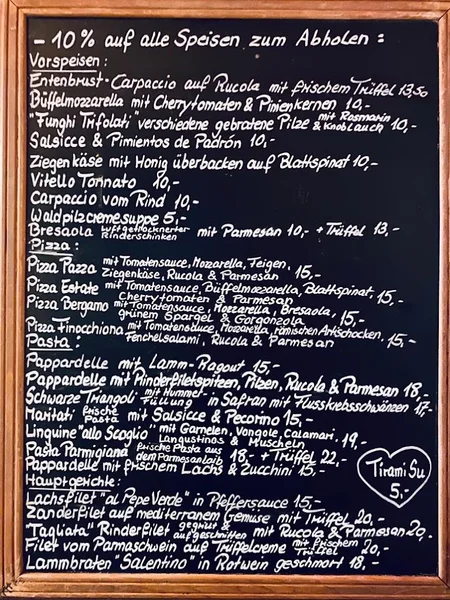 - 10% auf alle Speisen zum Abholen :
Vorspeisen :
Entenbrust-Carpaccio auf Rucola mit frischem Trüffel 13,50
Büffelmozzarella mit Cherrytomaten & Pinienkernen 10,-
"Funghi Trifolati" verschiedene gebratene Pilze mit Rosmarin & Knoblauch 10,-
Salsicce & Pimientos de Padrón 10,-
Ziegenkäse mit Honig überbacken auf Blattspinat 10,-
Vitello Tonnato 10,-
Carpaccio vom Rind 10,-
Waldpilzcremesuppe 5,-
Bresaola luftgetrockneter Rinderschinken mit Parmesan 10,- + Trüffel 13,-
Pizza :
Pizza Pazza mit Tomatensauce, Mozzarella, Feigen, Ziegenkäse, Rucola & Parmesan 15,-
Pizza Estate mit Tomatensauce, Büffelmozzarella, Blattspinat, Cherrytomaten & Parmesan 15,-
Pizza Bergamo mit Tomatensauce, Mozzarella, Bresaola, grünem Spargel & Gorgonzola 15,-
Pizza Finocchiona mit Tomatensauce, Mozzarella, römischen Artischocken, Fenchelsalami, Rucola & Parmesan 15,-
Pasta :
Pappardelle mit Lamm-Ragout 15,-
Pappardelle mit Rinderfiletspitzen, Pilzen, Rucola & Parmesan 18,-
Schwarze Triangoli mit Hummer-Füllung in Safran mit Flusskrebsschwänzen 17,-
Maritati frische Pasta mit Salsicce & Pecorino 15,-
Linguine "allo Scoglio" mit Garnelen, Vongole, Calamari, Langustinos & Muscheln 19,-
Pasta Parmigiana frische Pasta aus dem Parmesanlaib 18,- + Trüffel 22,-
Pappardelle mit frischem Lachs & Zucchini 15,-
Tirami Su
5,-
Hauptgerichte :
Lachsfilet "al Pepe Verde" in Pfeffersauce 15,-
Zanderfilet auf mediterranem Gemüse mit Trüffel 20,-
"Tagliata" Rinderfilet gegrillt & aufgeschnitten mit Rucola & Parmesan 20,-
Filet vom Parmaschwein auf Trüffelcreme mit frischem Trüffel 20,-
Lammbraten "Salentino" in Rotwein geschmort 18,-